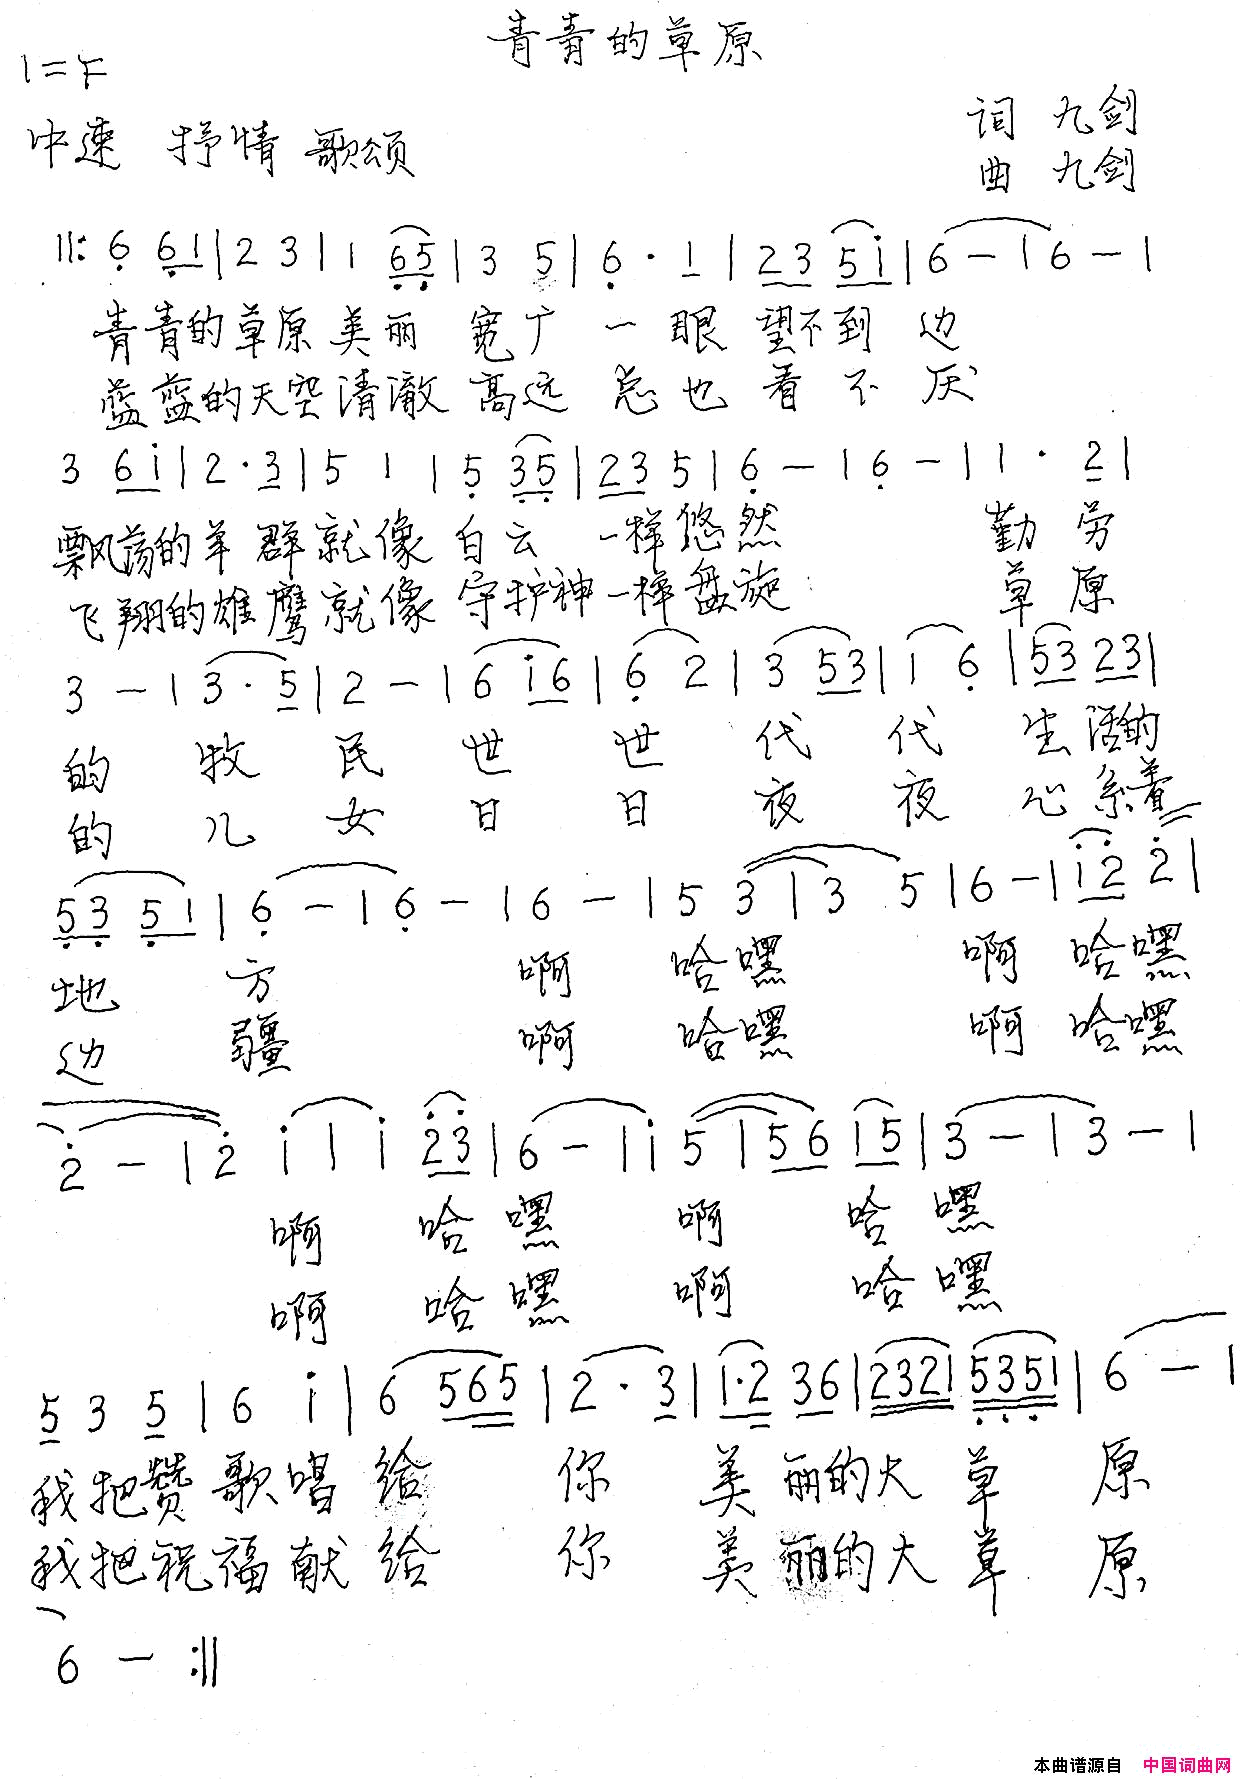 青青的草原
1=F
中速 抒情 歌颂
词 九剑
曲 九剑
||: 6̣ 6̣1 | 2 3 | 1 6̣5̣ | 3 5̣ | 6̣ · 1 | 23 5i | 6 — | 6 — |
青青的草原美丽 宽广 一眼望不到 边
蓝蓝的天空清澈 高远 总也看不厌
3 6i | 2 · 3 | 5 1 | 5̣ 3̣5̣ | 23 5 | 6̣ — | 6̣ — | 1 · 2 |
飘荡的羊群就像 白云 一样悠然 勤劳
飞翔的雄鹰就像 守护神一样盘旋 草原
3 — | 3 · 5 | 2 — | 6 i6 | 6̣ 2 | 3 53 | 1 6̣ | 53 23 |
的 牧民世世代代 生活的
的儿女日日夜夜 心系着
5̣3̣ 5̣1 | 6̣ — | 6̣ — | 6 — | 5 3 | 3 5 | 6 — | i2̇ 2̇ |
地 方 啊 哈嘿 啊 哈嘿
边 疆 啊 哈嘿 啊 哈嘿
2̇ — | 2̇ i | i 2̇3̇ | 6 — | i 5 | 56 15 | 3 — | 3 — |
啊 哈嘿 啊 哈嘿
啊 哈嘿 啊 哈嘿
5 3 5 | 6 i | 6 565 | 2 · 3 | 1·2 36 | 2321 5̣3̣5̣1 | 6 — |
我把赞歌唱给 你 美丽的大草 原
我把祝福献给 你 美丽的大草 原
6 — :||
本曲谱源自 中国词曲网